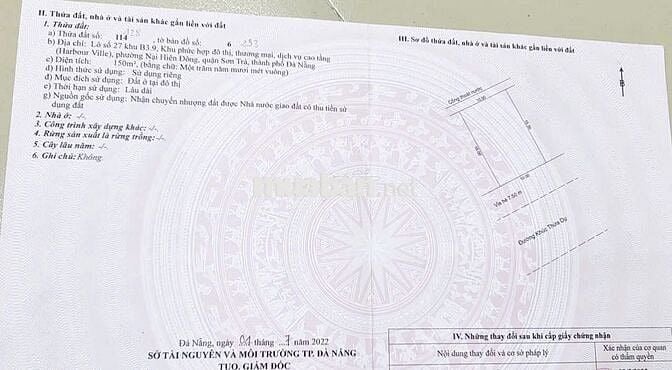 II. Thửa đất, nhà ở và tài sản khác gắn liền với đất
1. Thửa đất:
a) Thửa đất số: 114, tờ bản đồ số: 6
b) Địa chỉ: Lô số 27 khu B3.9, Khu phức hợp đô thị, thương mại, dịch vụ cao tầng
(Harbour Ville), phường Nại Hiên Đông, quận Sơn Trà, thành phố Đà Nẵng
c) Diện tích: 150m², (bằng chữ: Một trăm năm mươi mét vuông)
d) Hình thức sử dụng: Sử dụng riêng
đ) Mục đích sử dụng: Đất ở tại đô thị
e) Thời hạn sử dụng: Lâu dài
g) Nguồn gốc sử dụng: Nhận chuyển nhượng đất được Nhà nước giao đất có thu tiền sử
dụng đất
2. Nhà ở: -/-
3. Công trình xây dựng khác: -/-
4. Rừng sản xuất là rừng trồng: -/-
5. Cây lâu năm: -/-
6. Ghi chú: Không
III. Sơ đồ thửa đất, nhà ở và tài sản khác gắn liền với đất
B
Cống thoát nước
10.00
10.00
Vỉa hè 7.50 m
Đường Khúc Thừa Dụ
muaban.net
Đà Nẵng, ngày 01 tháng 7 2022
SỞ TÀI NGUYÊN VÀ MÔI TRƯỜNG TP. ĐÀ NẴNG
TUQ. GIÁM ĐỐC
IV. Những thay đổi sau khi cấp giấy chứng nhận
Nội dung thay đổi và cơ sở pháp lý
Xác nhận của cơ quan
có thẩm quyền